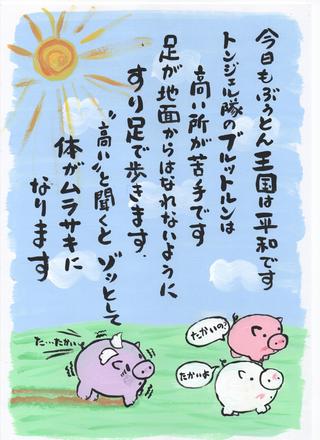 今日もぶぅとん王国は平和です
トンジェル隊のブルットルンは
高い所が苦手です
足が地面からはなれないように
すり足で歩きます.
"高い"と聞くとゾッとして
体がムラサキに
なります
た…たかい
たかいの?
たかいよ